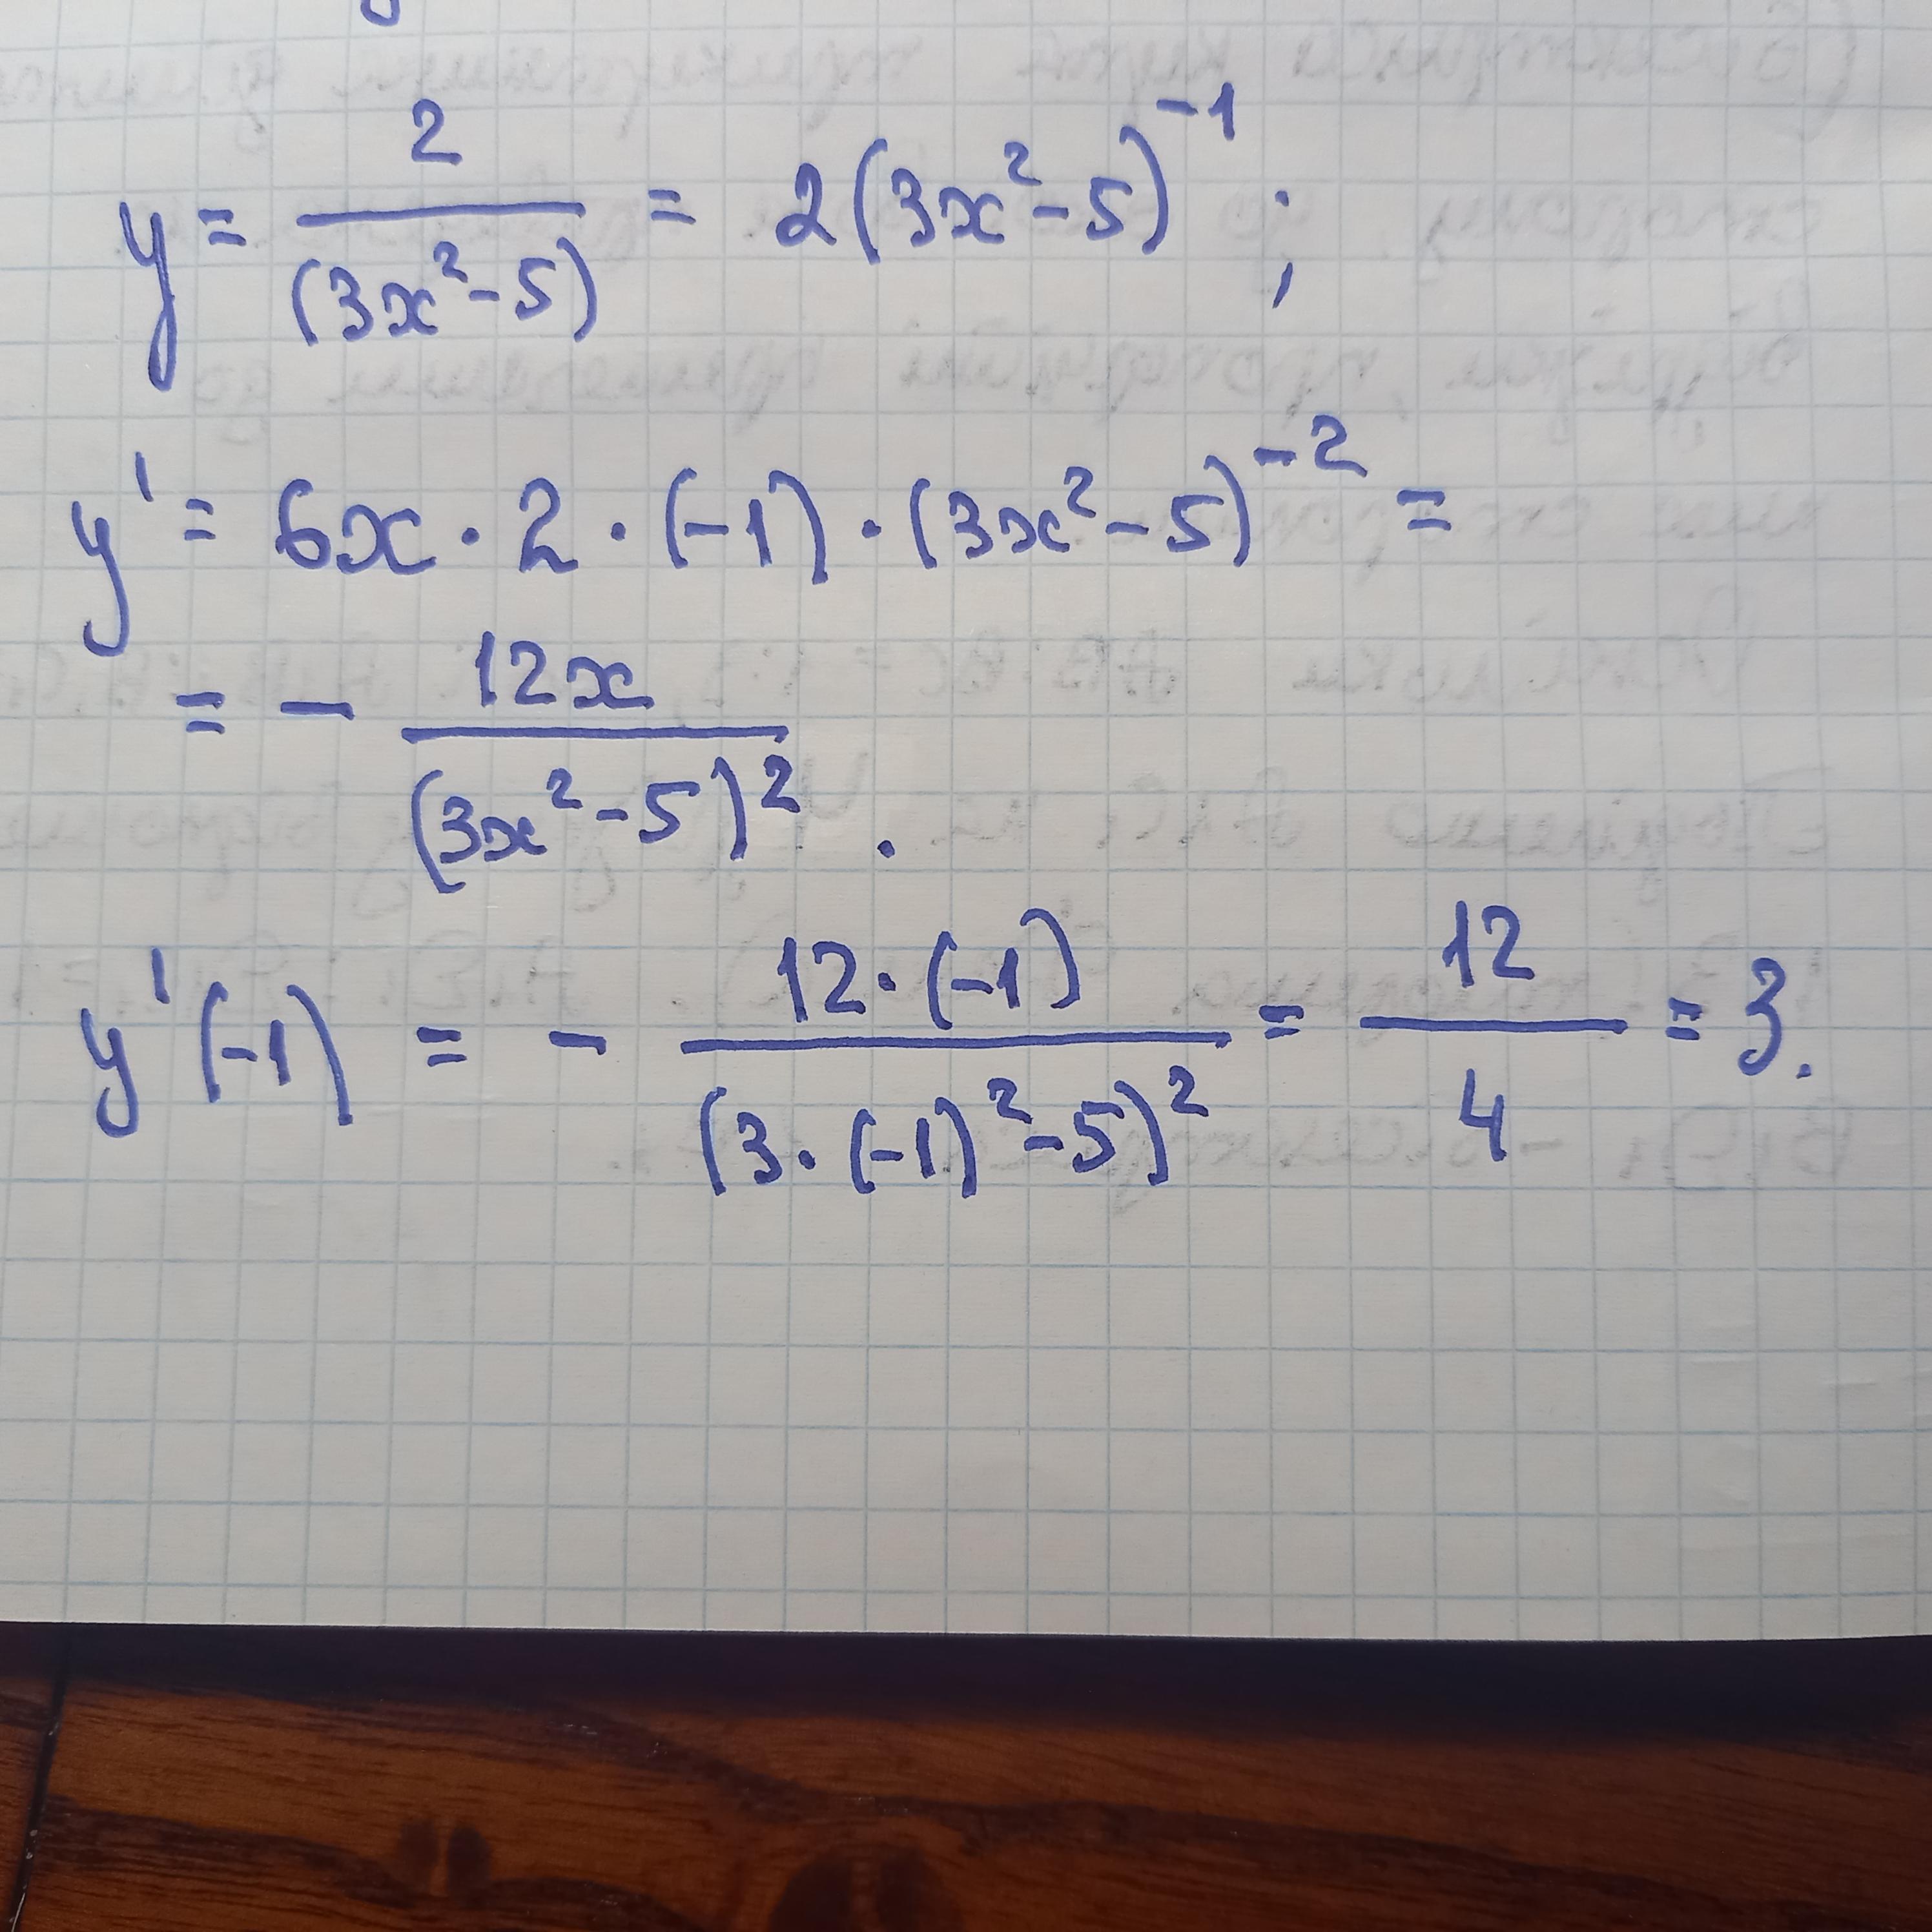 y = 2/(3x²-5) = 2(3x²-5)⁻¹;
y' = 6x · 2 · (-1) · (3x²-5)⁻² =
= - 12x/(3x²-5)².
y'(-1) = - 12·(-1)/(3·(-1)²-5)² = 12/4 = 3.